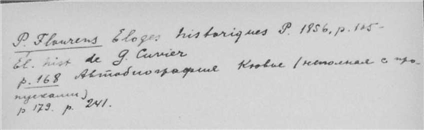 P. Flourens Eloges historiques P. 1856, p. 125-
El. hist de G. Cuvier
p. 168 Автобиография Кювье (неполная с про-
пусками)
p 179. p. 241.